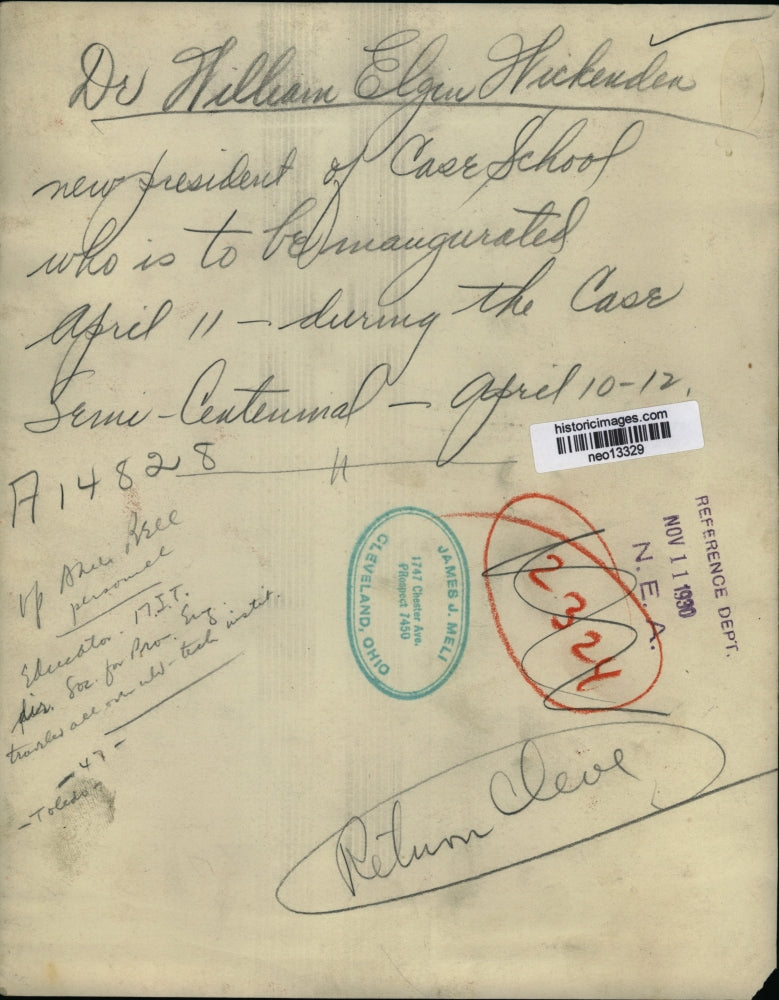 Dr William Elgin Wickenden
new president of Case School
who is to be inaugurated
April 11 – during the Case
Semi-Centennial – April 10-12.
A14828
historicimages.com
neo13329
VP Amer Bell
personnel
Educator. M.I.T.
dir. Soc. for Pro. Eng.
travled all over wld - tech instit.
- 47 -
- Toledo -
JAMES J. MELI
1747 Chester Ave.
PRospect 7450
CLEVELAND, OHIO
2324
REFERENCE DEPT.
NOV 11 1930
N. E. A.
Return Cleve